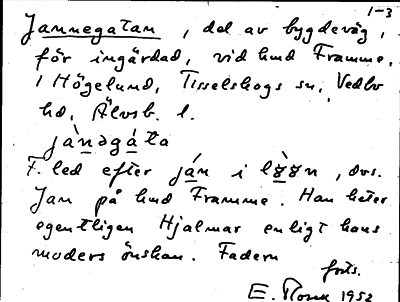 1-3
Jannegatan, del av bygdeväg,
för ingärdad, vid hmd Framme,
1 Högelund, Tisselskogs sn, Vedbo
hd, Älvsb. l.
jànəgàta
F. led efter ján i, dvs.
Jan på hmd Framme. Han heter
egentligen Hjalmar enligt hans
moders önskan. Fadern
forts.
E. 1952